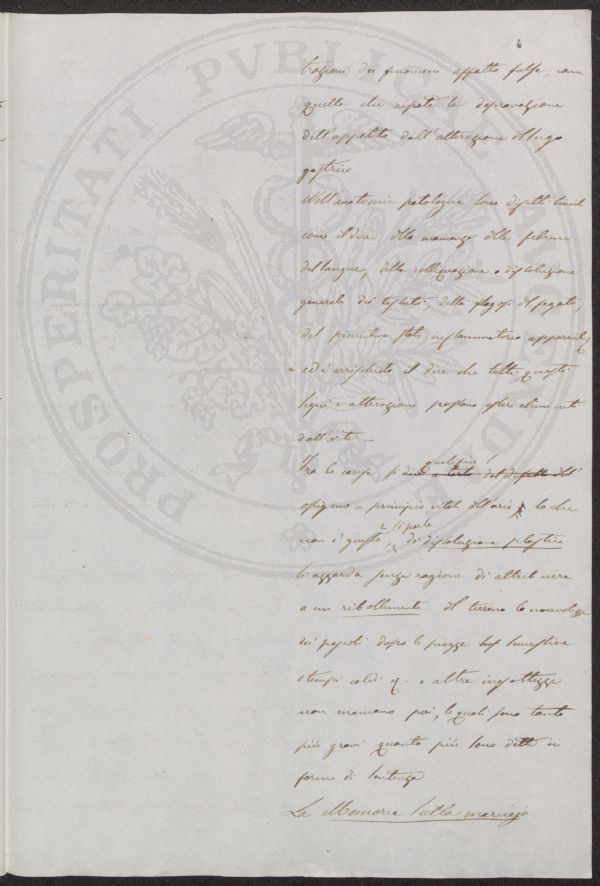 PROSPERITATI PVBLICAE
4
trazioni dei fenomeni affatto false, come
quella che ripete la depravazione
dell'appetito dall'alterazione del sugo
gastrico
Nell'anatomia patologica sono difetti
come il dire della mancanza della fibrina
del sangue, della colliquazione o dissoluzione
generale dei tessuti, della flogosi del fegato,
del primitivo stato inflammatorio
ed è arrischiato il dire che tutti questi
segni e alterazioni possono essere
dall'arte
Fra le cause si del difetto dell'
ossigeno = principio vitale dell'aria lo che
non è giusto, si parla di dissoluzione
si azzarda senza ragione di attribuire
a un ribollimento del terreno la
dei dopo le piogge
e tempi caldi e altre inesattezze
non mancano poi, le quali sono tanto
più gravi quanto più sono dette in
forma di sentenza
La Memoria sulla